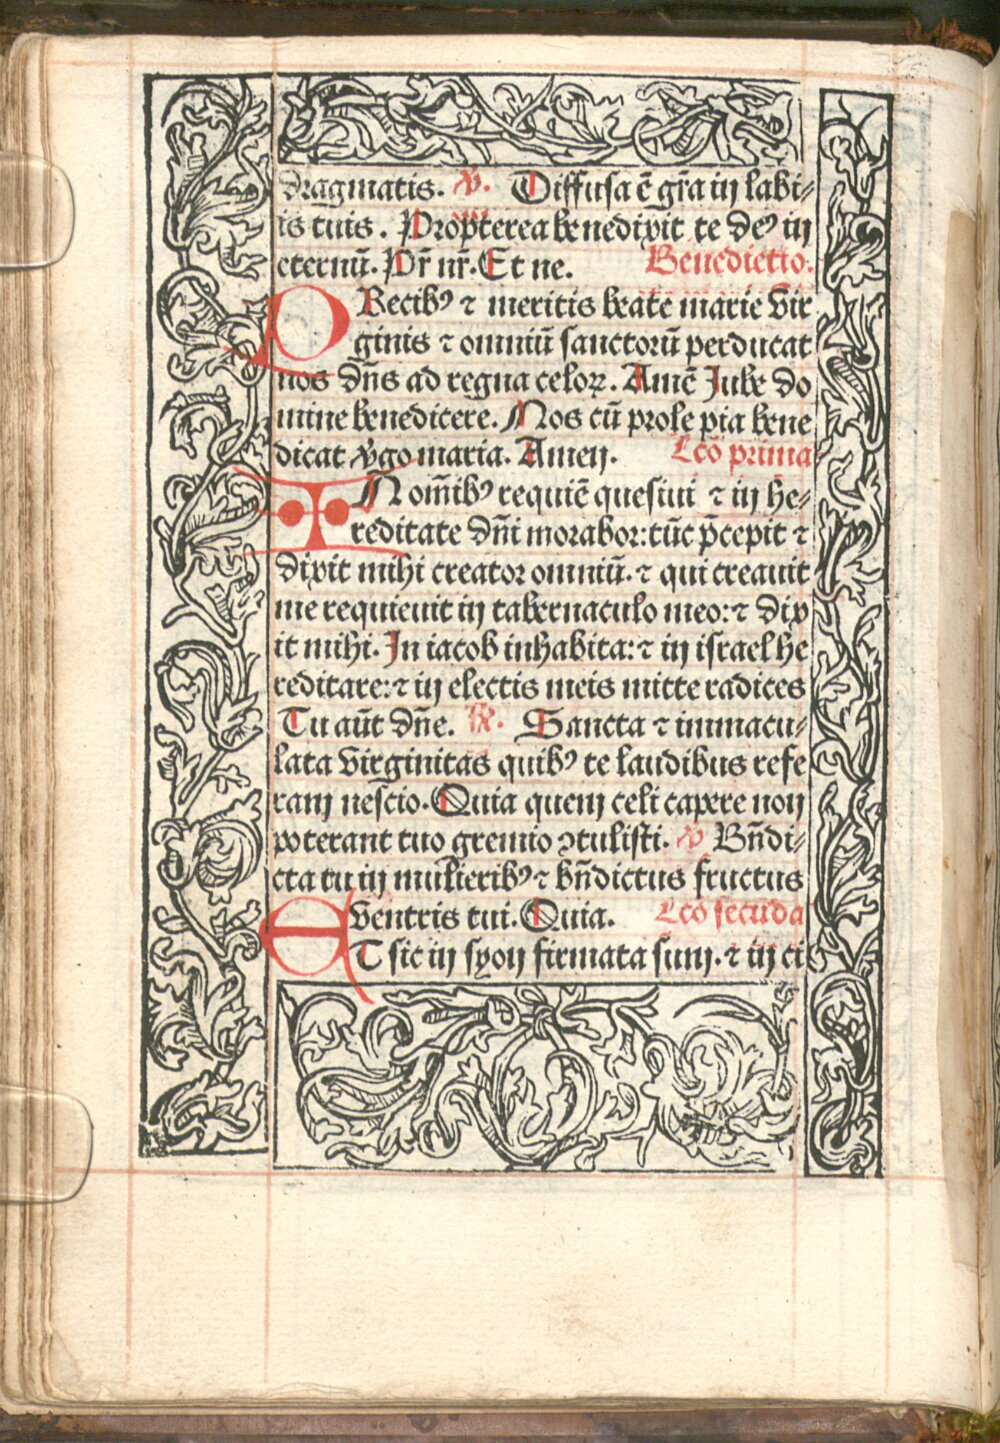 dragmatis. ℣. Diffusa ē gr̄a in labi⸗
is tuis. Propterea benedixit te deꝰ in
eternū. Pr̄ nr̄. Et ne. Benedictio.
PRecibꝰ ⁊ meritis beate marie vir
ginis ⁊ omniū sanctorū perducat
nos dn̄s ad regna celoꝝ. Amē Jube do
mine benedicere. Nos cū prole pia bene
dicat v̓go maria. Amen. Lcō prima
IN om̄ibꝰ requiē quesiui ⁊ in he⸗
reditate dn̄i morabor: tūc p̄cepit ⁊
dixit mihi creator omniū. ⁊ qui creauit
me requieuit in tabernaculo meo: ⁊ dix
it mihi. In iacob inhabita: ⁊ in israel he
reditare: ⁊ in electis meis mitte radices
Tu aūt dn̄e. ℟. Sancta ⁊ immacu⸗
lata virginitas quibꝰ te laudibus refe
ram nescio. Quia quem celi capere non
poterant tuo gremio ꝯtulisti. ℣ Bn̄di⸗
cta tu in mulieribꝰ ⁊ bn̄dictus fructus
ventris tui. Quia. Lcō secūda
ET sic in syon firmata sum. ⁊ in ci